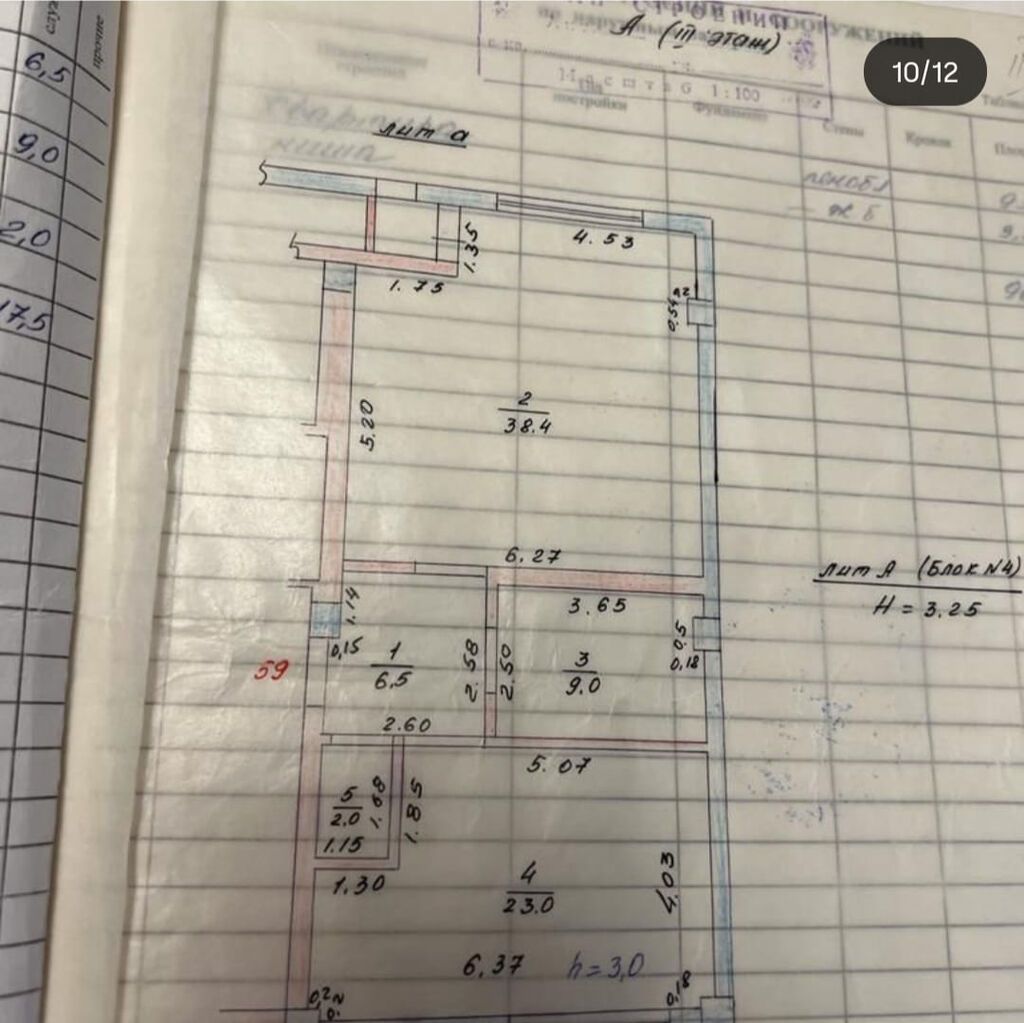 прочие
6,5
9,0
2,0
17,5
А (III этаж)
10/12
Масштаб 1:100
постройки
Фундамент
Стены
Кровля
лит а
4.53
1.35
1.75
0.54
5.20
2
38.4
6.27
лит А (Блок №4)
H = 3.25
3.65
1.14
0,15
59
1
6,5
2.58
2.50
3
9.0
0.5
0,18
2.60
5.07
5
2.0
1.68
1.85
1.15
1.30
4
23.0
4.03
6,37
h=3,0
0,18